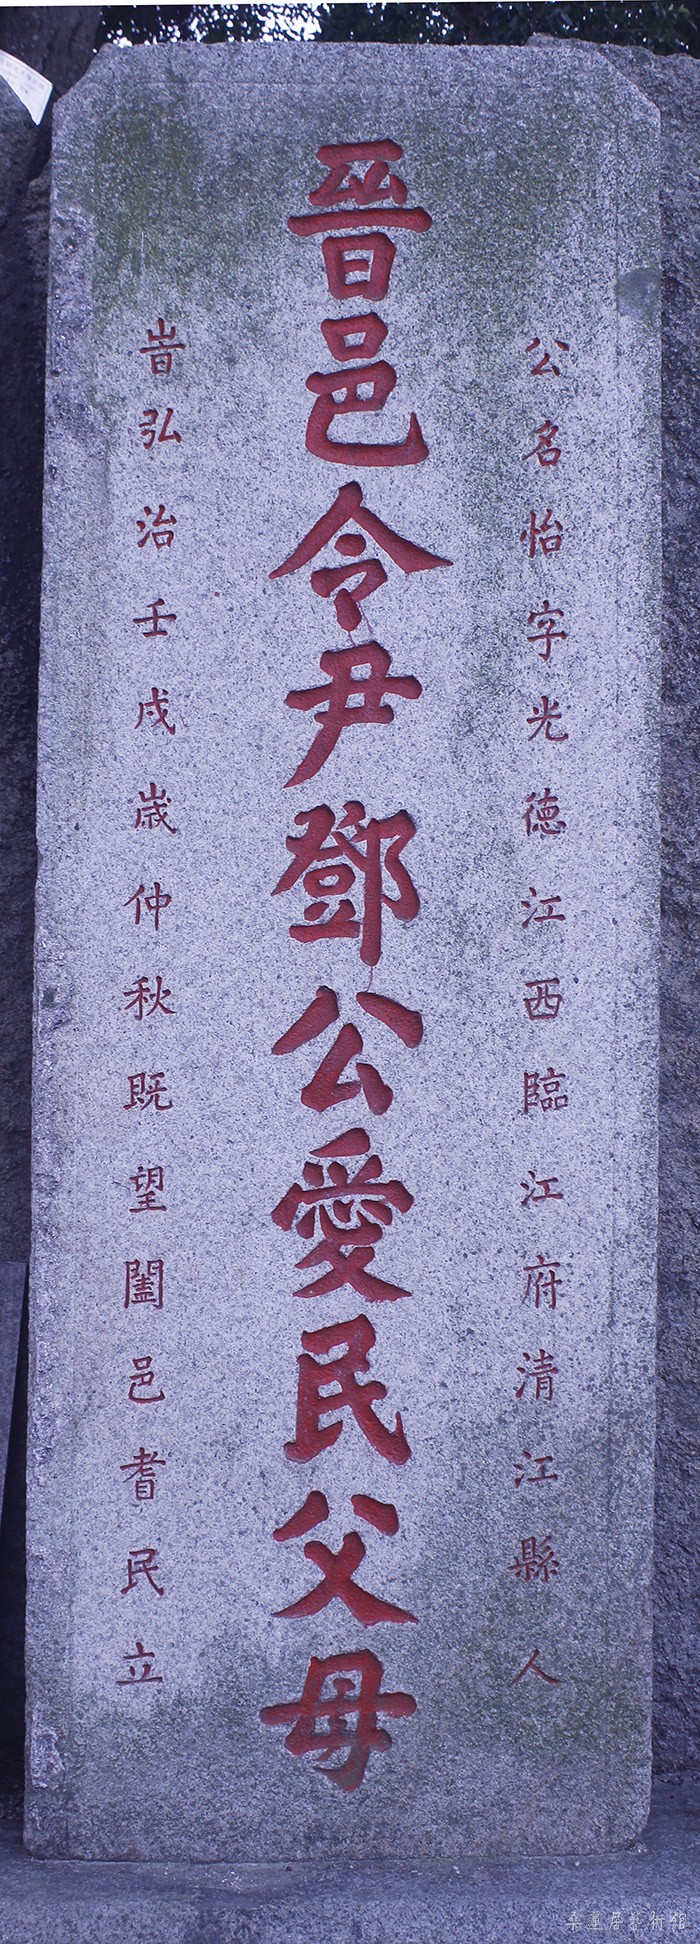 公名怡字光德江西臨江府清江縣人
晉邑令尹鄧公愛民父母
旹弘治壬戌歲仲秋既望闔邑耆民立